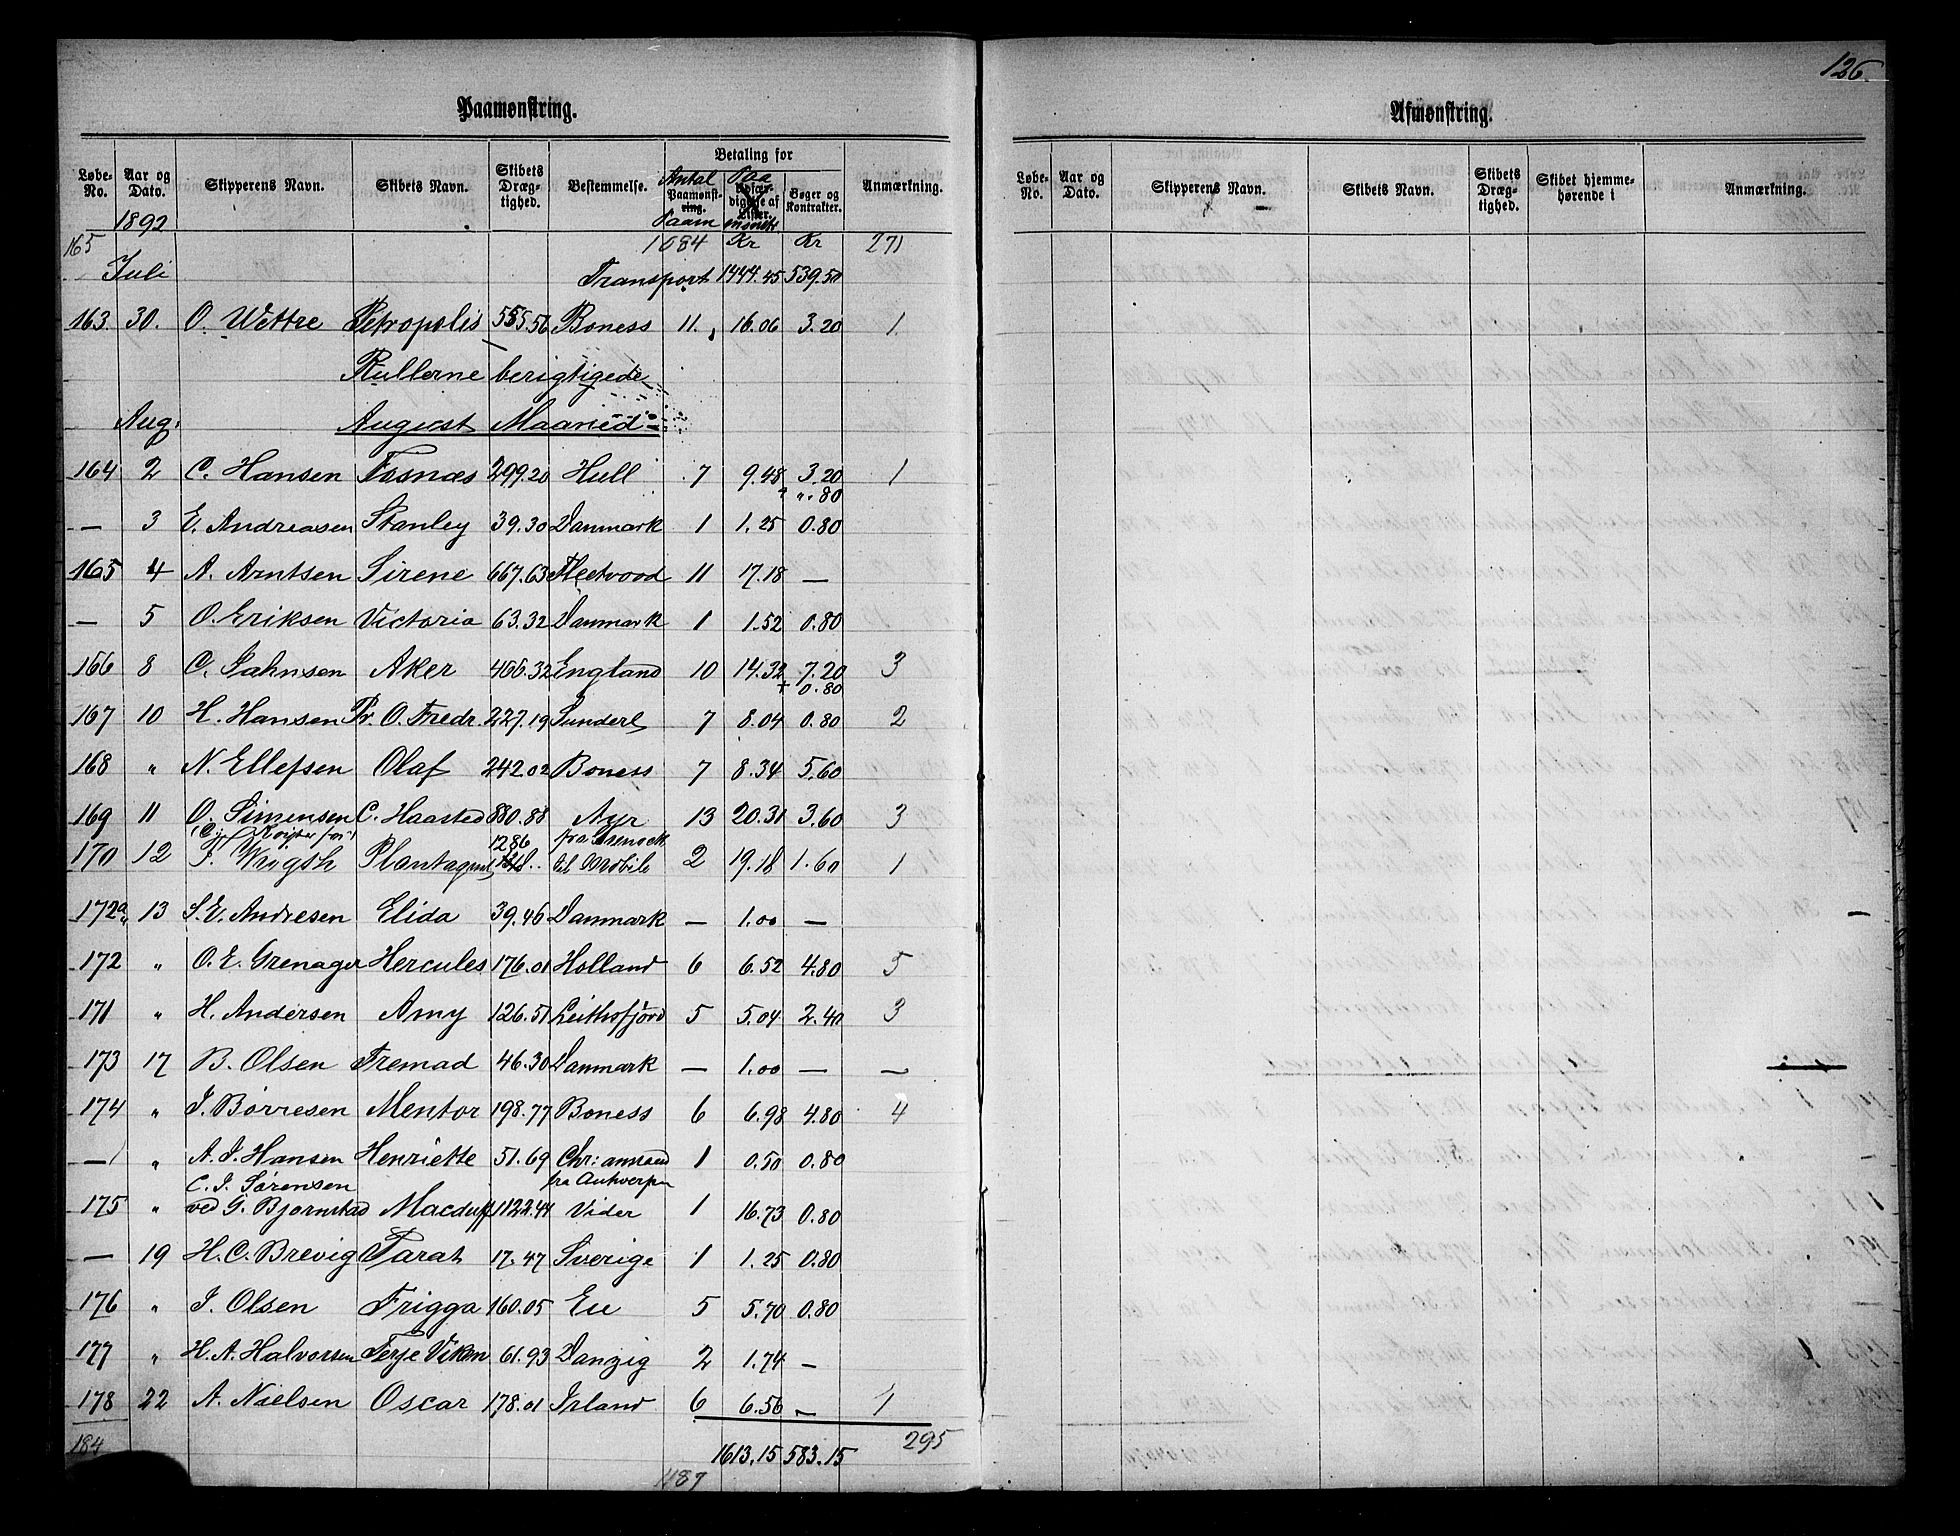 126.
Paamønstring.
Afmønstring.
Løbe-No. Aar og Dato. Skipperens Navn. Skibets Navn. Skibets Dræg-tighed. Bestemmelse. Betaling for Antal Paamønst-ring. Paam Paa Udfær-digelse af Lister. mønstr Bøger og Kontrakter. Anmærkning.
Løbe-No. Aar og Dato. Skipperens Navn. Skibets Navn. Skibets Dræg-tighed. Skibet hjemme-hørende i Anmærkning.
1892
165 1084 Kr Kr 271
Juli Transport 1444.45 539.50
163 30. O. Wettre Petropolis 555.56 Boness 11. 16.06 3.20 1.
Rullerne berigtigede
Aug. August Maaned
164 2 C. Hansen Fosnæs 299.20 Hull 7 9.48 3.20 1
" 80
— 3 E. Andreasen Stanley 39.30 Danmark 1 1.25 0.80
165 4 A. Arntsen Sirene 667.63 Fleetvood 11 17.18 —
— 5 O. Eriksen Victoria 63.32 Danmark 1 1.52 0.80
166 8 C. Jahnsen Aker 466.32 England 10 14.32 7.20 3
+ 0.80
167 10 H. Hansen Pr. O. Fredr. 227.19 Sunderl 7 8.04 0.80 2
168 " N. Ellefsen Olaf 242.02 Boness 7 8.34 5.60
169 11 O. Simensen C. Haasted 880.88 Ayr 13 20.31 3.60 3
1286 fra Grenock
170 12 F. Plantagnet til Mobile 2 19.18 1.60 1
172a 13 S. E. Andresen Elida 39.46 Danmark — 1.00 —
172 " O. E. Grenager Hercules 176.01 Holland 6 6.52 4.80 5
171 " H. Andersen Amy 126.51 Leithsfjord 5 5.04 2.40 3
173 17 B. Olsen Fremad 46.30 Danmark — 1.00 — —
174 " J. Børresen Mentor 198.77 Boness 6 6.98 4.80 4
— " A. J. Hansen Henriette 51.69 Chr: ansand 1 0.50 0.80
C. J. Sørensen fra Antwerpen
175 " ved G. Bjørnstad Macduff 1122.44 Vider 1 16.73 0.80
— 19 H. C. Brevig Farat 17.47 Sverige 1 1.25 0.80
176 " J. Olsen Frigga 160.05 Eu 5 5.70 0.80
177 " H. A. Halvorsen Terje Viken 61.93 Danzig 2 1.74 —
178 22 A. Nielsen Oscar 178.01 Irland 6 6.56 — 1
184 1613.15 583.15 295
1187